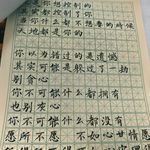 你什么都想控制的
你什么都控制不了
当你什么都不想要的时候
天地都是你的
你以为错过的是遗憾
其实可能是躲过了一劫
别贪心
你不可能什么都拥有
也别灰心
你不可能什么都没有
愿所愿